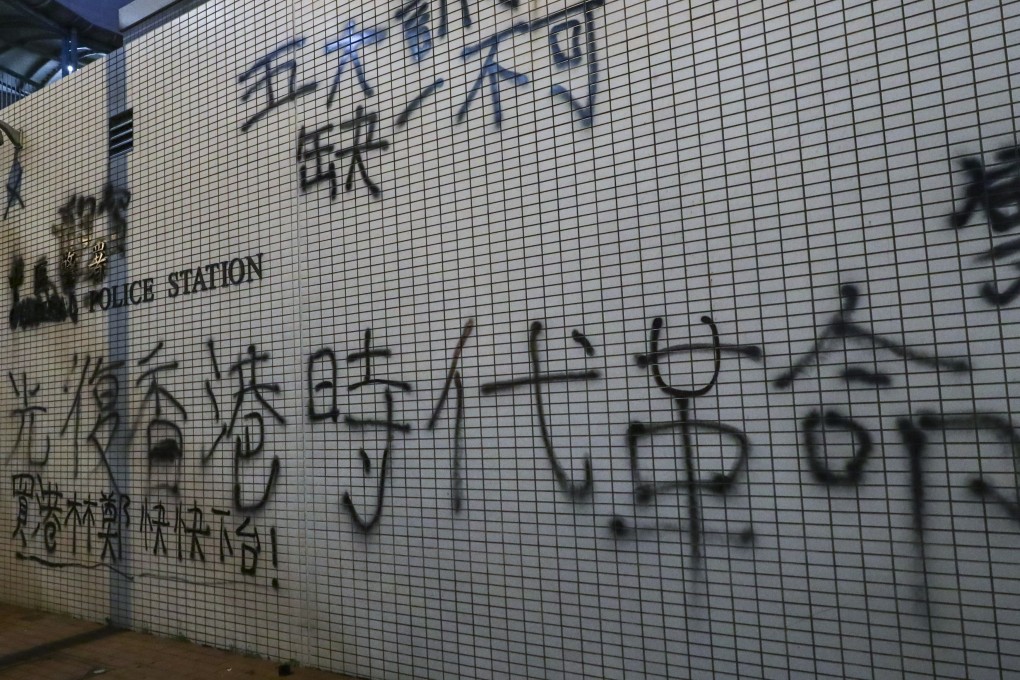 五大訴
缺一不可
署
POLICE STATION
光復香港時代革命
買港林鄭快快下台!